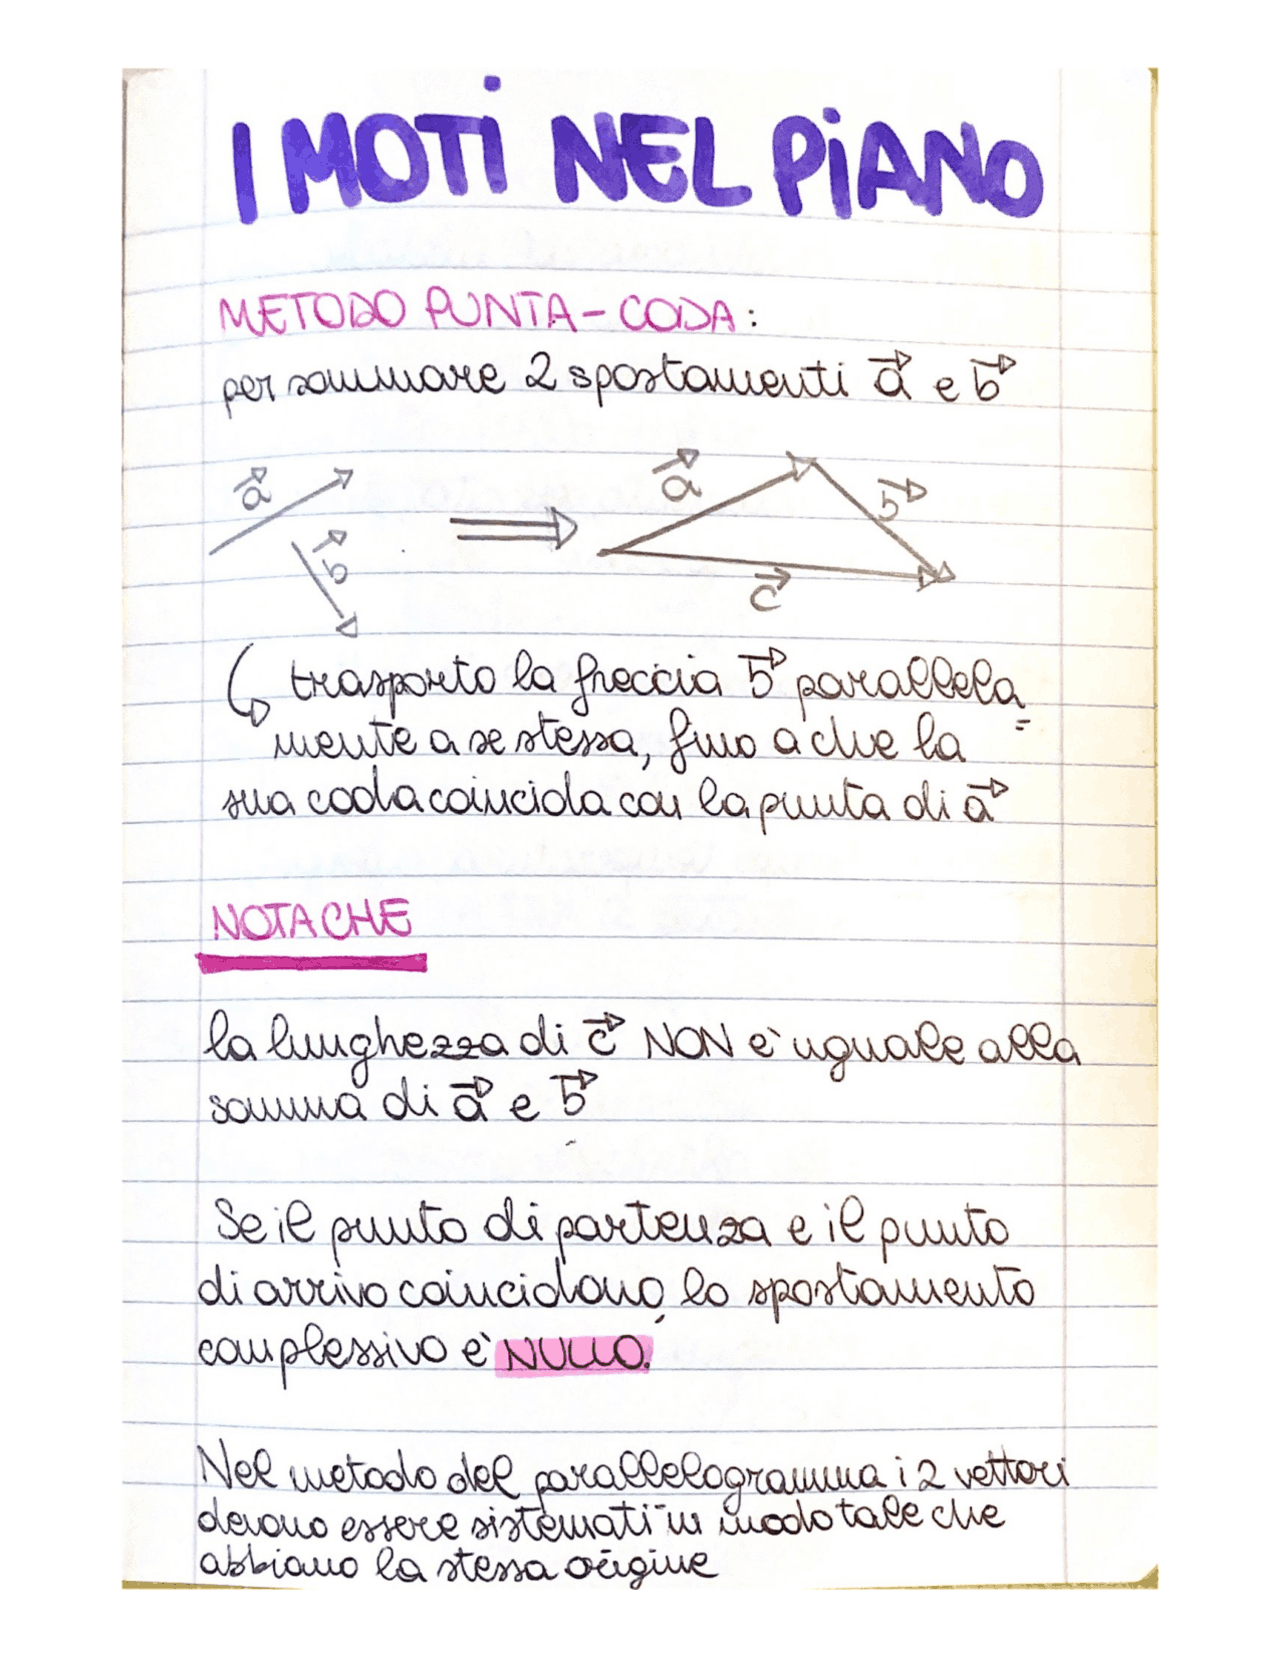 I MOTI NEL PIANO
METODO PUNTA-CODA:
per sommare 2 spostamenti a⃗ e b⃗
a⃗
b⃗
a⃗
b⃗
c⃗
trasporto la freccia b⃗ parallela=
mente a se stessa, fino a che la
sua coda coincida con la punta di a⃗
NOTA CHE
la lunghezza di c⃗ NON è uguale alla
somma di a⃗ e b⃗
Se il punto di partenza e il punto
di arrivo coincidono, lo spostamento
complessivo è NULLO.
Nel metodo del parallelogramma i 2 vettori
devono essere sistemati in modo tale che
abbiano la stessa origine